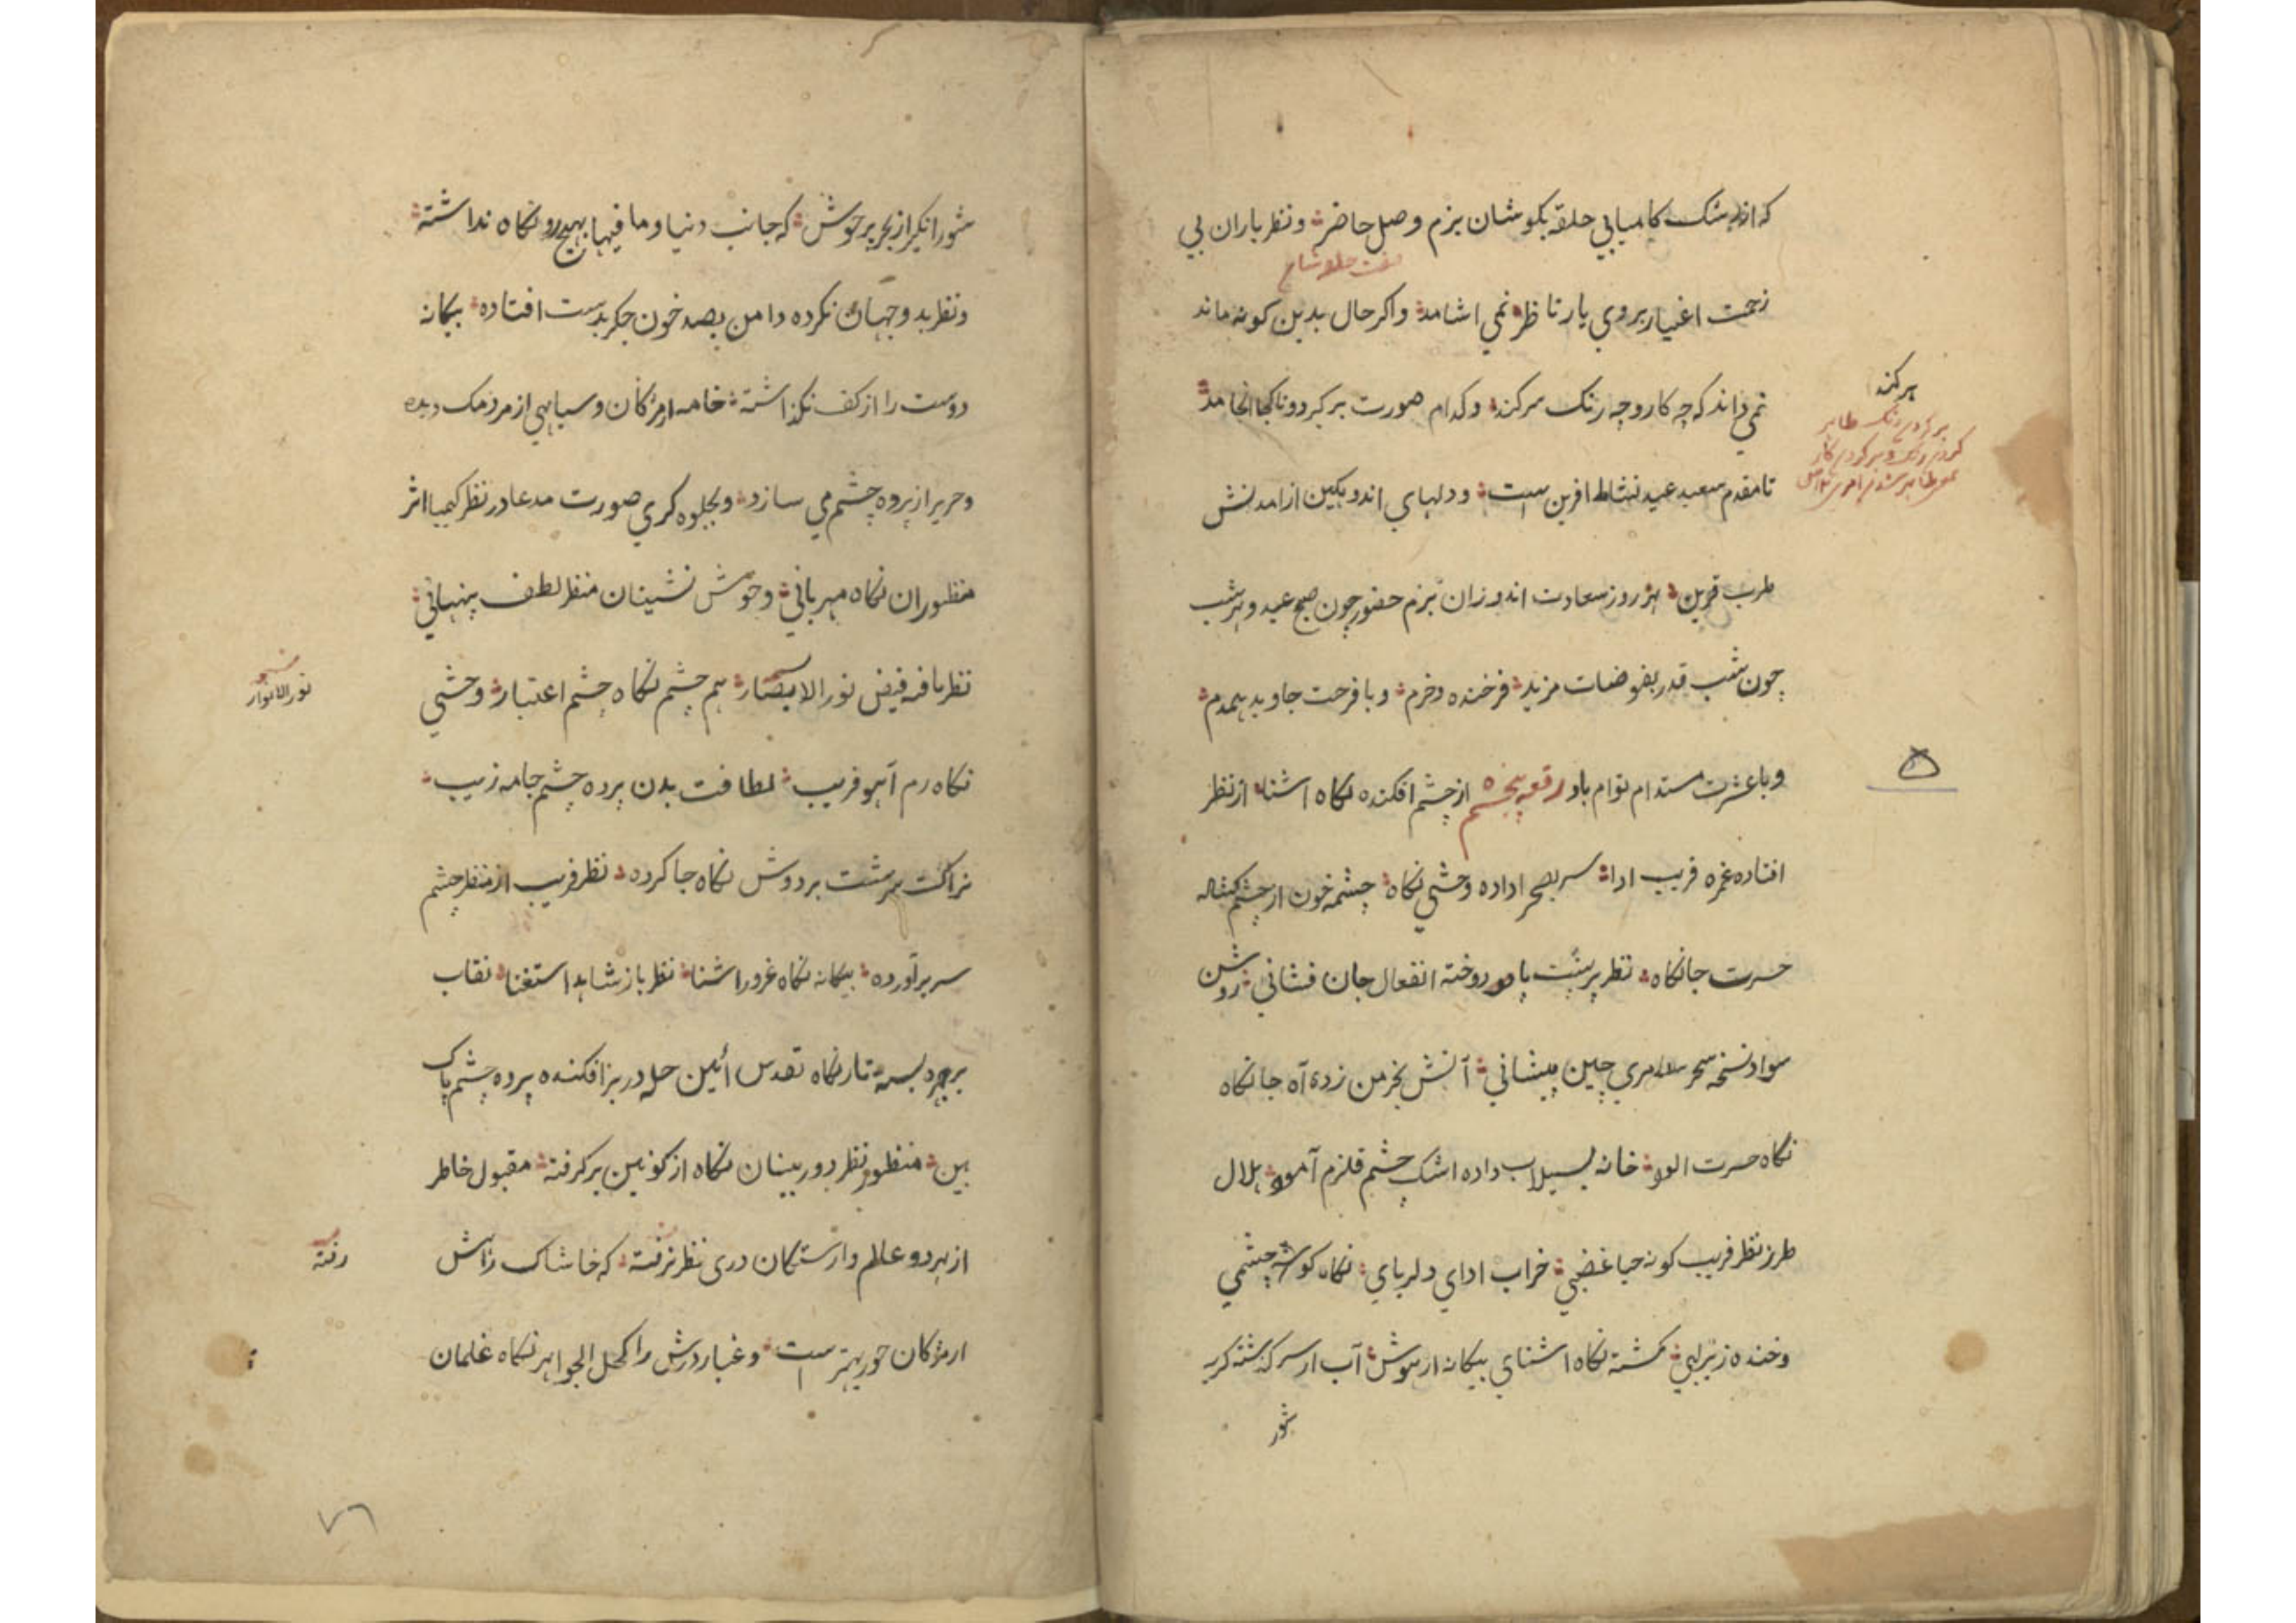 که از رشک کامیابی حلقه بکوشان بزم وصل حاضر و نظر یاران بی
زحمت اغیار بروی یار ناظر نمی اشامد واکر حال بدین کونه ماند
نمی داند که چه کار و چه رنک سرکند و کدام صورت برکیرد و تا کجا انجامد
سرکند
تا مقدم سعید عید نشاط افرین است و دلهای اندوهکین از امدنش
طرب قرین هر روز سعادت اندوزان بزم حضور چون صبح عید و هر شب
چون شب قدر بفوضات مزید فرخنده و خرم و با فرحت جاوید همدم
و با عشرت مستدام توام باد رقعه پنجم از چشم افکنده نکاه اشنا از نظر
۵
افتاده غمزه فریب ادا سر بصحرا داده وحشی نکاه چشمه خون از چشم کشاله
حسرت جانکاه نظر بر پشت پا دوخته انفعال جان فشانی روشن
سواد نسخه سحر سامری چین پیشانی آتش بخرمن زده آه جانکاه
نکاه حسرت الود خانه بسیلاب داده اشک چشم قلزم آمود هلال
طرز نظر فریب کونه حیا غضبی خراب ادای دلربای نکاه کوشه چشمی
و خنده زیر لبی کشته نکاه اشنای بیکانه از هوش آب از سر کذشته کریه
شور
شور انکیز از بحر پر جوش که جانب دنیا و ما فیها بهیچ رو نکاه نداشته
و نظر بد و جهان نکرده دامن بصد خون جکر بدست افتاده بیکانه
دوست را از کف نکذاشته خامه از مژکان و سیاهی از مردمک دیده
و حریر از پرده چشم می سازد و بجلوه کری صورت مدعا در نظر کیمیا اثر
منظوران نکاه مهربانی و خوش نشینان منظر لطف پنهانی
نظر یافه فیض نور الابصار هم چشم نکاه چشم اعتبار وحشی
نور الانوار
نکاه رم آهو فریب لطافت بدن پرده چشم جامه زیب
نزاکت سرشت بر دوش نکاه جا کرده نظر فریب از منظر چشم
سر برآورده بیکانه نکاه غرور اشنا نظر باز شاهد استغنا نقاب
بر چهره بسته تار نکاه تقدس آئین حله در بر افکنده پرده چشم پاک
بین منظور نظر دوربینان نکاه از کونین برکرفته مقبول خاطر
از هر دو عالم وارستکان دری نظر نرفته که خاشاک راهش
رفته
از مژکان حور بهتر است و غبار درش را کحل الجواهر نکاه غلمان
۷۶